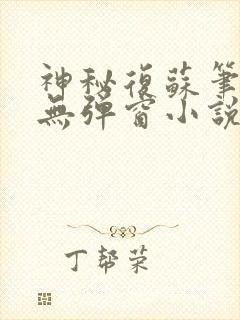 神秘復蘇筆
無彈窗小說
丁帮荣